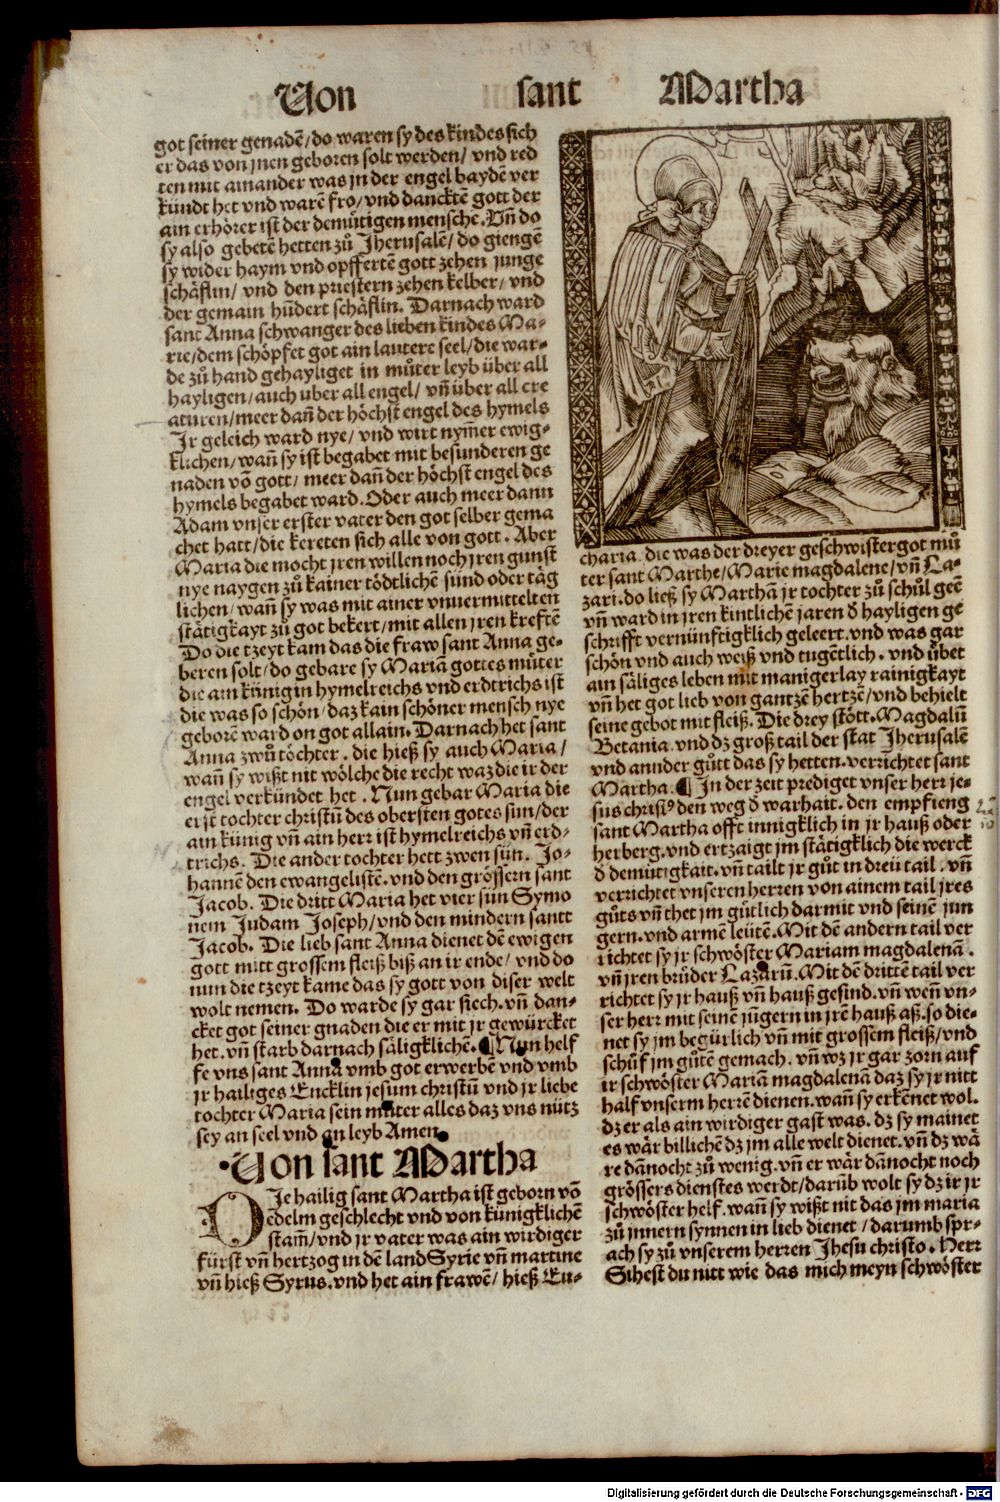 Von sant Martha
got seiner genadē/do waren sy des kindes sich
er das von jnen geboren solt werden/ vnd red
ten mit ainander was jn der engel baydē ver
kündt het vnd warē fro/vnd dancktē gott der
ain erhörer ist der demůtigen menschē. Vñ do
sy also gebetē hetten zů Jherusalē/do giengē
sy wider haym vnd opffertē gott zehen junge
schäflin/ vnd den priestern zehen kelber/ vnd
der gemain hūdert schäflin. Darnach ward
sant Anna schwanger des lieben kindes Ma-
rie/dem schöpfet got ain lautere seel/die war-
de zů hand gehayliget in můter leyb über all
hayligen/auch uber all engel/ vñ über all cre
aturen/meer dañ der höchst engel des hymels
Jr geleich ward nye/ vnd wirt nym̄er ewig-
klichen/wañ sy ist begabet mit besunderen ge
naden vō gott/ meer dañ der höchst engel des
hymels begabet ward. Oder auch meer dann
Adam vnser erster vater den got selber gema
chet hatt/die kereten sich alle von gott. Aber
Maria die mocht jren willen noch jren gunst
nye naygen zů kainer tödtlichē sünd oder täg
lichen/wañ sy was mit ainer vnuermittelten
stätigkayt zů got bekert/mit allen jren kreftē
Do die tzeyt kam das die fraw sant Anna ge-
beren solt/do gebare sy Mariā gottes můter
die ain künigin hymelreichs vnd erdtrichs ist
die was so schön/daz kain schöner mensch nye
geborē ward on got allain. Darnach het sant
Anna zwů töchter. die hieß sy auch Maria/
wañ sy wißt nit wölche die recht waz die ir der
engel verkündet het. Nun gebar Maria die
erst tochter christū des obersten gotes sun/der
ain künig vñ ain herr ist hymelreichs vñ erd-
trichs. Die ander tochter hett zwen sün. Jo-
hannē den ewangelistē.vnd den grössern sant
Jacob. Die dritt Maria het vier sün Symo
nem Judam Joseph/vnd den mindern santt
Jacob. Die lieb sant Anna dienet dē ewigen
gott mitt grossem fleiß biß an ir ende/ vnd do
nun die tzeyt kame das sy gott von diser welt
wolt nemen. Do warde sy gar siech. vñ dan-
cket got seiner gnaden die er mit jr gewürcket
het. vñ starb darnach säligklichē. ¶ Nun helf
fe vns sant Anna vmb got erwerbē vnd vmb
jr hailiges Encklin jesum christū vnd jr liebe
tochter Maria sein můter alles daz vns nütz
sey an seel vnd an leyb Amen
Von sant Martha
DJe hailig sant Martha ist geborn vō
edelm geschlecht vnd von künigklichē
stam̄/vnd jr vater was ain wirdiger
fürst vñ hertzog in dē land Syrie vñ martine
vñ hieß Syrus.vnd het ain frawē/ hieß Eu-
charia. die was der dreyer geschwistergot mů
ter sant Marthe/Marie magdalene/vñ La-
zari.do ließ sy Marthā jr tochter zů schůl geē
vñ ward in jren kintlichē jaren d̄ hayligen ge
schrifft vernünftigklich geleert.vnd was gar
schön vnd auch weiß vnd tugētlich. vnd übet
ain säliges leben mit manigerlay rainigkayt
vñ het got lieb von gantzē hertzē/vnd behielt
seine gebot mit fleiß. Die drey stött. Magdalū
Betania.vnd dz groß tail der stat Jherusalē
vnd annder gůtt das sy hetten.verrichtet sant
Martha. ¶ Jn der zeit prediget vnser herr je-
sus christ9 den weg d̄ warhait. den empfieng
sant Martha offt innigklich in jr hauß oder
herberg.vnd ertzaigt jm stätigklich die werck
d̄ demütigkait. vñ tailt jr gůt in dreü tail. vñ
verrichtet vnseren herren von ainem tail jres
gůts vñ thet jm gütlich darmit vnd seinē jun
gern.vnd armē leütē. Mit dē andern tail ver
richtet sy jr schwöster Mariam magdalenā.
vñ jren brůder Lazarū. Mit dē drittē tail ver
richtet sy jr hauß vñ hauß gesind. vñ weñ vn-
ser herr mit seinē jügern in jrē hauß aß. so die-
net sy jm begürlich vñ mit grossem fleiß/vnd
schůf jm gůtē gemach. vñ wz jr gar zorn auf
ir schwöster Mariā magdalenā daz sy jr nitt
half vnserm herrē dienen. wañ sy erkēnet wol.
dz er als ain wirdiger gast was. dz sy mainet
es wär billichē dz jm alle welt dienet. vñ dz wä
re dānocht zů wenig. vñ er wär dānocht noch
grössers dienstes werdt/darūb wolt sy dz ir jr
schwöster helf. wañ sy wißt nit das jm maria
zů jnnern synnen in lieb dienet/darumb spr-
ach sy zů vnserem herren Jhesu christo. Herr
Sihest du nitt wie das mich meyn schwöster
Digitalisierung gefördert durch die Deutsche Forschungsgemeinschaft - DFG